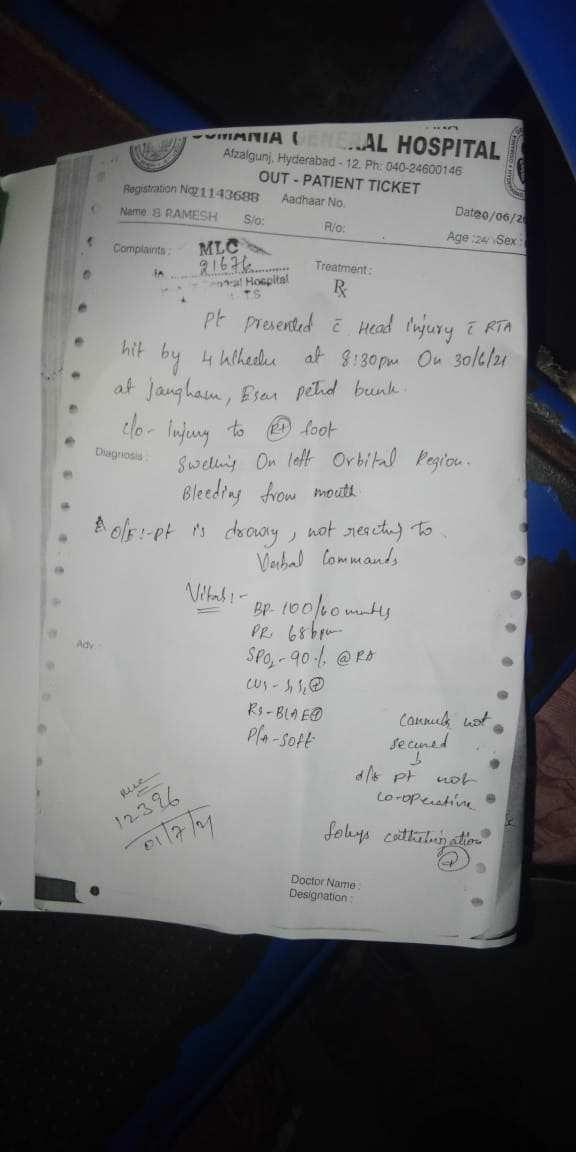 OSMANIA GENERAL HOSPITAL
Afzalgunj, Hyderabad - 12. Ph: 040-24600146
OUT - PATIENT TICKET
Registration No 21143688 Aadhaar No.
Name S RAMESH S/o: R/o: Date 30/06/2
Age : 24/ Sex :
Complaints : MLC Treatment :
21676
General Hospital
Rx
Pt presented c̄ Head Injury c̄ RTA
hit by 4 Wheeler at 8:30pm On 30/6/21
at Jangham, Essar petrol bunk.
c/o - Injury to Rt foot
Diagnosis : Swelling On left Orbital Region.
Bleeding from mouth.
O/E :- Pt is drowsy, not reacting to
Verbal Commands
Vitals :-
BP- 100/60 mmHg
PR- 68 bpm
Adv : SPO2 - 90 % @ RA
CVS - S1S2 +
RS - BLAE +
P/A - Soft
Cannula not
secured
↓
pt not
co-operative
12396
01/7/21
foleys catheterization
+
Doctor Name :
Designation :